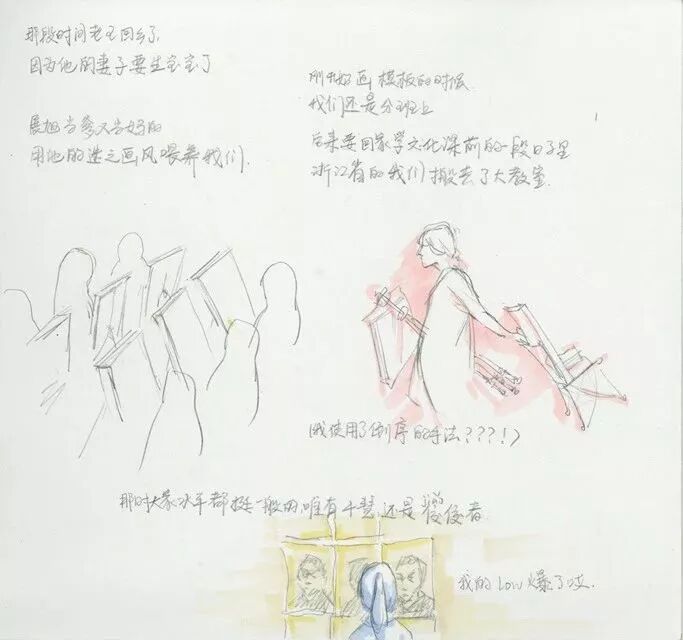 那段时间老王回乡了
因为他的妻子要生宝宝了
展旭当爹又当妈的
用他的迷之画风喂养我们.
刚开始画模板的时候
我们还是分班上
后来要回家学文化课前的一段日子里
浙江省的我们搬去了大教室.
(我使用了倒序的手法???!)
那时大家水平都挺一般的,唯有千慧还是佼佼者
我的low爆了哎.